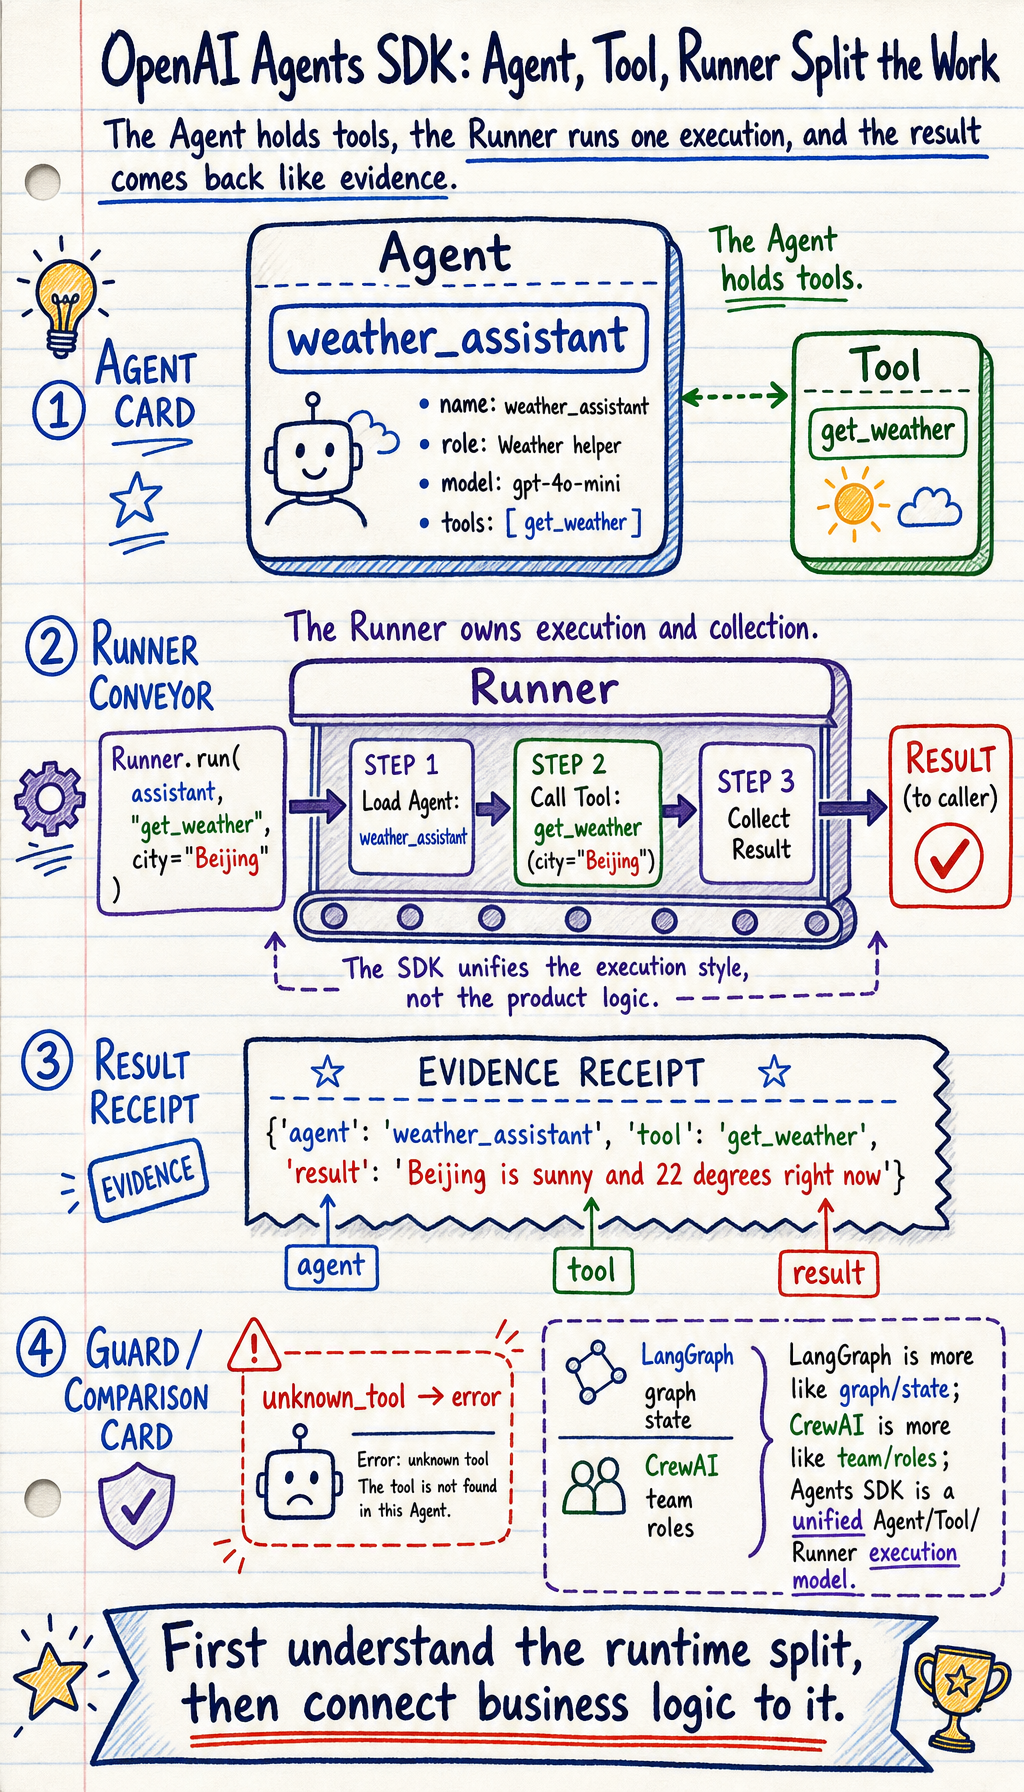 OpenAI Agents SDK: Agent, Tool, Runner Split the Work
The Agent holds tools, the Runner runs one execution, and the result
comes back like evidence.
1 AGENT
CARD
Agent
weather_assistant
• name: weather_assistant
• role: Weather helper
• model: gpt-4o-mini
• tools: [ get_weather ]
The Agent
holds tools.
Tool
get_weather
2 RUNNER
CONVEYOR
The Runner owns execution and collection.
Runner
Runner.run(
assistant,
"get_weather",
city="Beijing"
)
STEP 1
Load Agent:
weather_assistant
STEP 2
Call Tool:
get_weather
(city="Beijing")
STEP 3
Collect
Result
RESULT
(to caller)
The SDK unifies the execution style,
not the product logic.
3 RESULT
RECEIPT
EVIDENCE
EVIDENCE RECEIPT
{'agent': 'weather_assistant', 'tool': 'get_weather',
'result': 'Beijing is sunny and 22 degrees right now'}
agent
tool
result
4 GUARD/
COMPARISON
CARD
!
unknown_tool → error
Error: unknown tool
The tool is not found
in this Agent.
LangGraph
graph
state
CrewAI
team
roles
LangGraph is more
like graph/state;
CrewAI is more
like team/roles;
Agents SDK is a
unified Agent/Tool/
Runner execution
model.
First understand the runtime split,
then connect business logic to it.